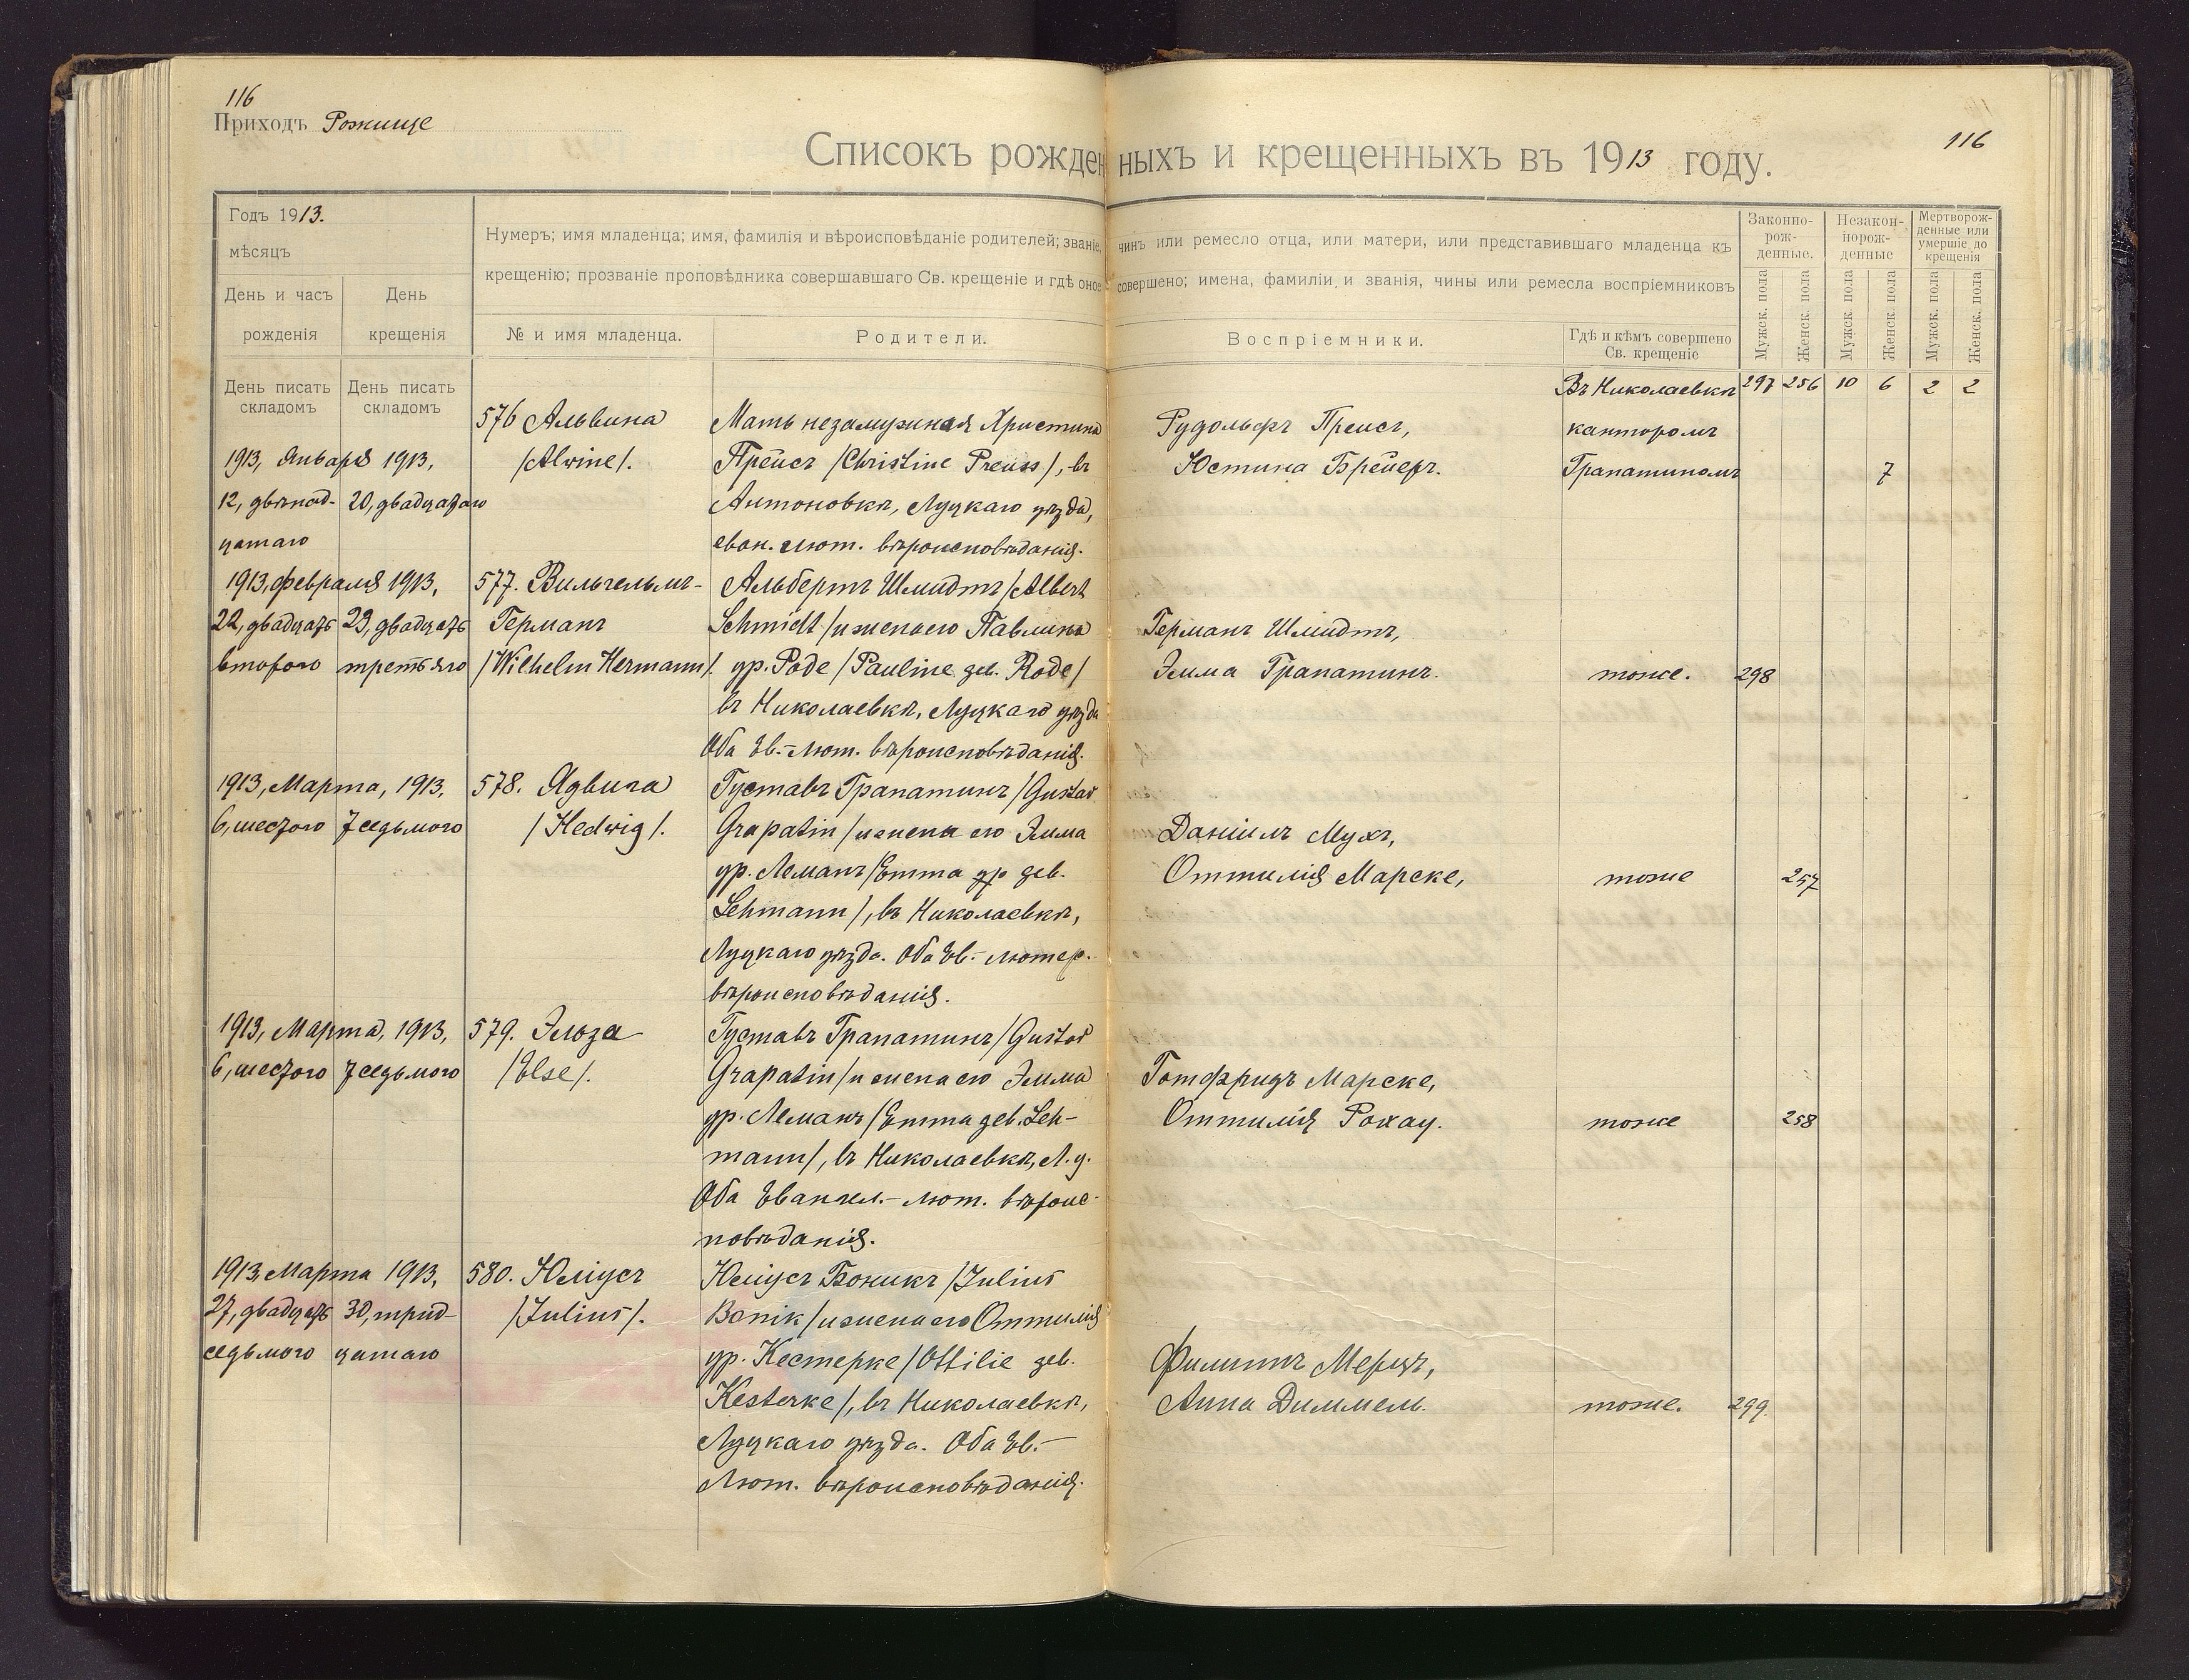 116
Приходъ Рожище
116
Списокъ рожденныхъ и крещенныхъ въ 1913 году.
Годъ 1913.
мѣсяцъ
День и часъ рожденія
День крещенія
Нумеръ; имя младенца; имя, фамилія и вѣроисповѣданіе родителей; званіе, чинъ или ремесло отца, или матери, или представившаго младенца къ
крещенію; прозваніе проповѣдника совершавшаго Св. крещеніе и гдѣ оное совершено; имена, фамиліи и званія, чины или ремесла воспріемниковъ
№ и имя младенца.
Родители.
Воспріемники.
Гдѣ и кѣмъ совершено
Св. крещеніе
Законно-
рож-
денные.
Незакон-
норож-
денные
Мертворож-
денные или
умершіе до
крещенія
Мужск. пола
Женск. пола
Мужск. пола
Женск. пола
Мужск. пола
Женск. пола
День писать
складомъ
День писать
складомъ
Въ Николаевкѣ 297 256 10 6 2 2
1913, Января 1913,
12, двѣнад- 20, двадцатаго
цатаго
576 Альвина
/Alwine/.
Мать незамужняя Христина
Прейсъ /Christine Preuss/, въ
Антоновкѣ, Луцкаго уѣзда,
еван. лют. вѣроисповѣданія.
Рудольфъ Прейсъ,
Юстина Брейеръ.
канторомъ
Грапатиномъ
7
1913, Февраля 1913,
22, двадцать 23, двадцать
второго третьяго
577. Вильгельмъ-
Германъ
/Wilhelm Hermann/.
Альбертъ Шмидтъ /Albert
Schmidt/ и жена его Павлина
ур. Роде /Pauline geb. Rode/
въ Николаевкѣ, Луцкаго уѣзда
Оба Ев.-Лют. вѣроисповѣданія.
Германъ Шмидтъ,
Эмма Грапатинъ.
тоже.
298
1913, Марта, 1913,
6, шестого 7 седьмого
578. Ядвига
/Hedwig/.
Густавъ Грапатинъ /Gustav
Grapatin/ и жена его Эмма
ур. Леманъ /Emma ур geb.
Lehmann/, въ Николаевкѣ,
Луцкаго уѣзда. Оба Ев.-лютер.
вѣроисповѣданія.
Даніилъ Мухъ,
Оттилія Марске,
тоже
257
1913, Марта, 1913,
6, шестого 7 седьмого
579. Эльза
/Else/.
Густавъ Грапатинъ /Gustav
Grapatin/ и жена его Эмма
ур. Леманъ /Emma geb. Leh-
mann/, въ Николаевкѣ, Л. у.
Оба Евангел.-лют. вѣроис-
повѣданія.
Готфридъ Марске,
Оттилія Рохау.
тоже
258
1913, Марта 1913,
27, двадцать 30, трид-
седьмого цатаго
580. Юліусъ
/Julius/.
Юліусъ Боникъ /Julius
Bonik/ и жена его Оттилія
ур. Кестерке /Ottilie geb.
Kesterke/, въ Николаевкѣ,
Луцкаго уѣзда. Оба Ев.-
Лют. вѣроисповѣданія.
Филиппъ Мерцъ,
Анна Диммель.
тоже.
299.